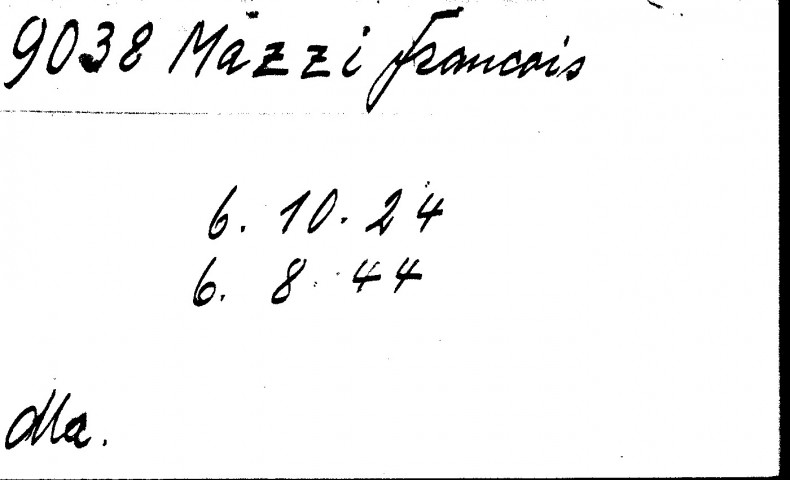 9038 Mazzi Francois
6. 10. 24
6. 8. 44
Ma.